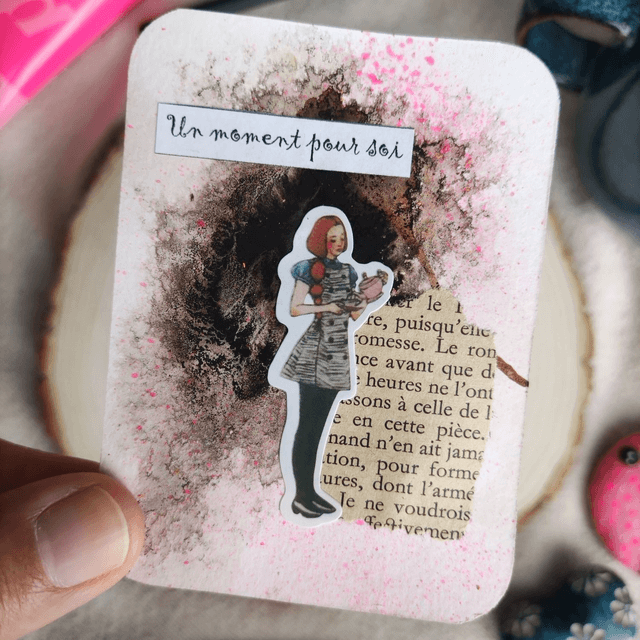 Un moment pour soi
er le
re, puisqu'elle
romesse. Le ron
nce avant que d
e heures ne l'ont
ssons à celle de l
e en cette pièce.
nand n'en ait jama
tion, pour forme
ures, dont l'armé
Je ne voudrois
effectivement